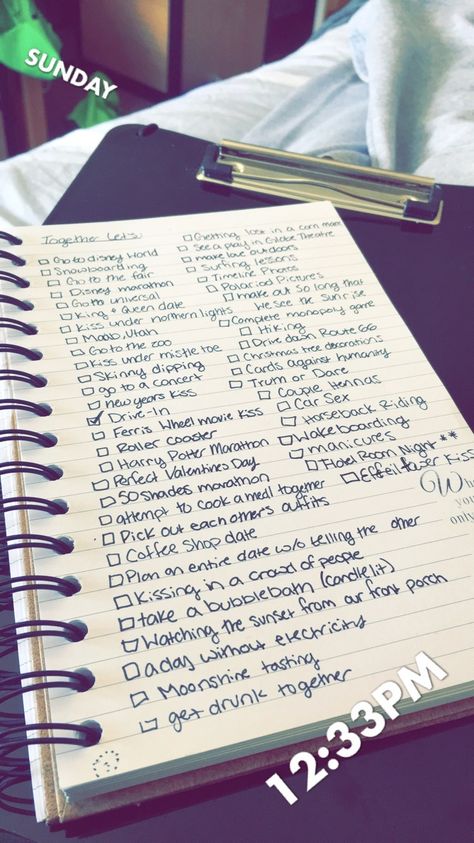 SUNDAY
Together Let's:
Go to disney World
Snowboarding
Go to the fair
Disney marathon
Go to universal
King + Queen date
Kiss under northern lights
Moab, Utah
Go to the zoo
Kiss under mistle toe
Skinny dipping
go to a concert
new years kiss
Drive-In
Ferris Wheel movie kiss
Roller coaster
Harry Potter Marathon
Perfect Valentines Day
50 Shades marathon
attempt to cook a meal together
Pick out each others outfits
Coffee Shop date
Plan an entire date w/o telling the other
Kissing in a crowd of people
take a bubblebath (candle lit)
Watching the sunset from our front porch
a day without electricity
Moonshine tasting
get drunk together
Getting lost in a corn maze
See a play in Globe Theatre
make love outdoors
Surfing lessons
Timeline Photos
Polariod Pictures
make out so long that
we see the sunrise
Complete monopoly game
Hiking
Drive down Route 66
Christmas tree decorations
Cards against humanity
Trum or Dare
Couple Hennas
Car Sex
Horseback Riding
Wakeboarding
manicures
Hotel Room Night **
Eiffel tower Kiss
12:33PM